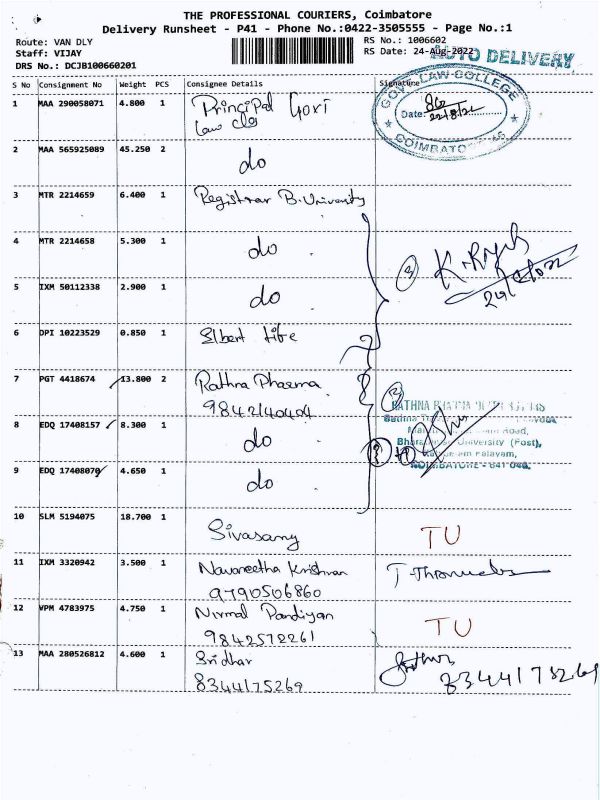 THE PROFESSIONAL COURIERS, Coimbatore
Delivery Runsheet - P41 - Phone No.:0422-3505555 - Page No.:1
Route: VAN DLY
Staff: VIJAY
DRS No.: DCJB100660201
RS No.: 1006602
RS Date: 24-Aug-2022
AUTO DELIVERY
S No Consignment No Weight PCS Consignee Details Signature
GOVT LAW COLLEGE
Date:
COIMBATORE
1 MAA 290058071 4.800 1 Principal Govt
Law clg
2 MAA 565925089 45.250 2 do
3 MTR 2214659 6.400 1 Registrar B.University
4 MTR 2214658 5.300 1 do
5 IXM 50112338 2.900 1 do
6 DPI 10223529 0.850 1
7 PGT 4418674 13.800 2 Rathna Pharma
9842140404
RATHNA
8 EDQ 17408157 8.300 1 do
Road,
University (Post),
Palayam,
COIMBATORE - 641 046.
9 EDQ 17408070 4.650 1 do
10 SLM 5194075 18.700 1 Sivasamy TU
11 IXM 3320942 3.500 1 Navaneetha Krishnan
9790506860
12 VPM 4783975 4.750 1 Nirmal Pandiyan TU
9842572261
13 MAA 280526812 4.600 1 Sridhar
8344175269
8344178269